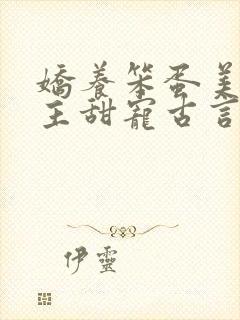 嬌養笨蛋美
王甜寵古言
伊靈